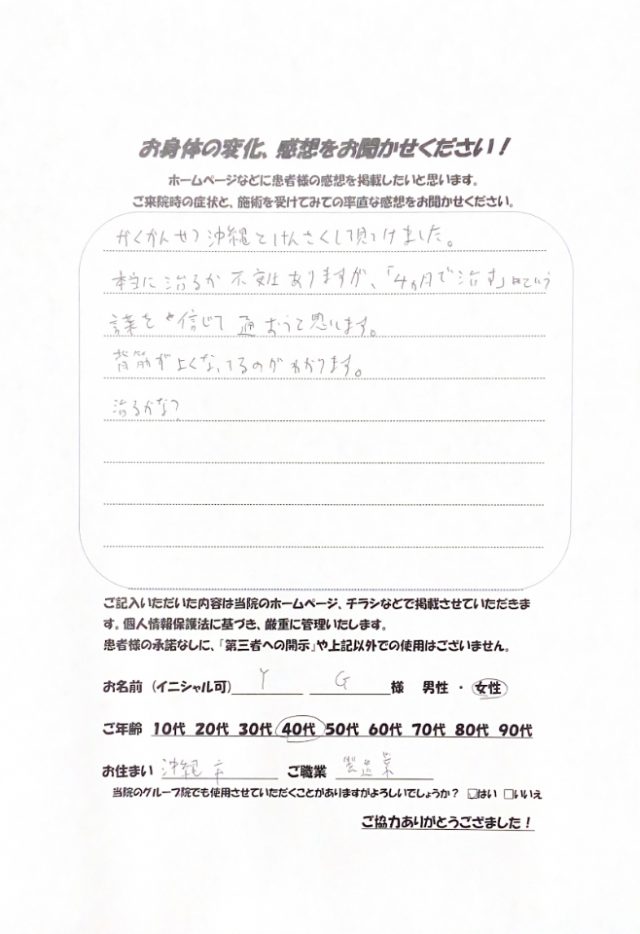 お身体の変化、感想をお聞かせください！
ホームページなどに患者様の感想を掲載したいと思います。
ご来院時の症状と、施術を受けてみての率直な感想をお聞かせください。
がくかんせつ 沖縄とけんさくして見つけました。
本当に治るか不安はありますが、「4ヵ月で治す」という
言葉を信じて通おうと思います。
背筋がよくなってるのがわかります。
治るかな？
ご記入いただいた内容は当院のホームページ、チラシなどで掲載させていただきま
す。個人情報保護法に基づき、厳重に管理いたします。
患者様の承諾なしに、「第三者への開示」や上記以外での使用はございません。
お名前（イニシャル可） Y G 様 男性 ・ 女性
ご年齢 10代 20代 30代 40代 50代 60代 70代 80代 90代
お住まい 沖縄市 ご職業 製造業
当院のグループ院でも使用させていただくことがありますがよろしいでしょうか？ □はい □いいえ
ご協力ありがとうござました！